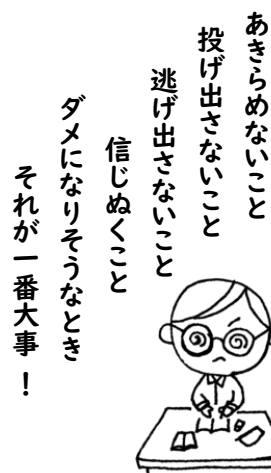 あきらめないこと
投げ出さないこと
逃げ出さないこと
信じぬくこと
ダメになりそうなとき
それが一番大事！